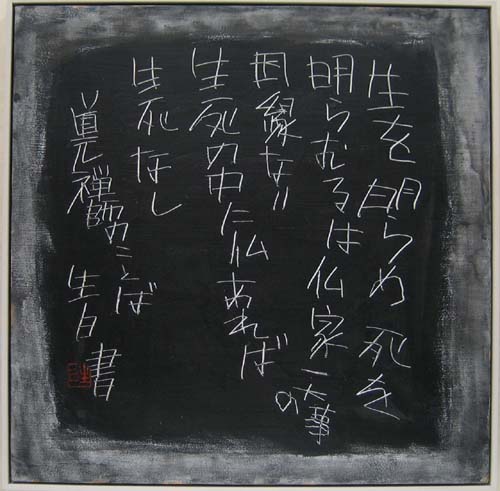 生を明らめ死を
明らむるは仏家一大事の
因縁なり
生死の中に仏あれば
生死なし
道元禅師のことば
生白書